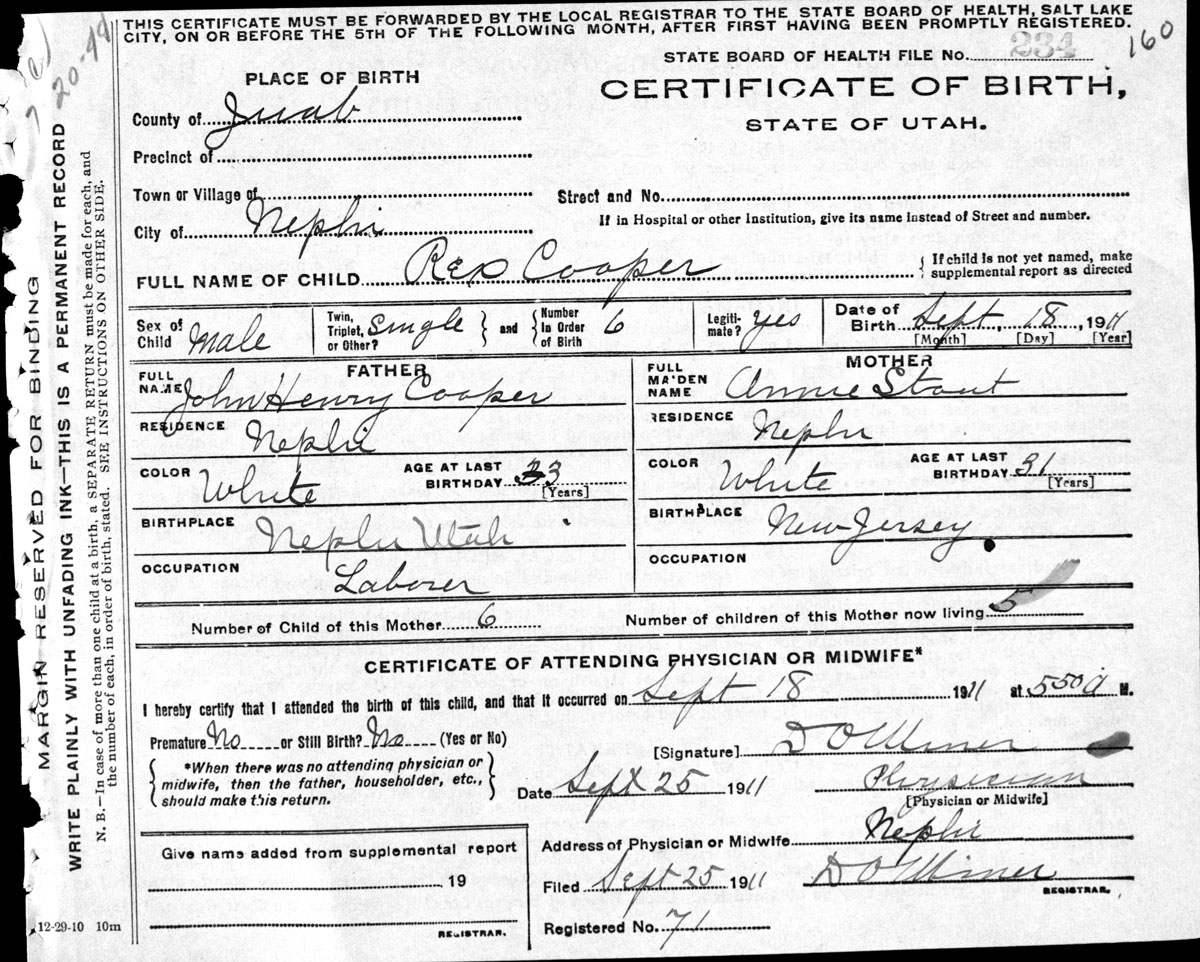 THIS CERTIFICATE MUST BE FORWARDED BY THE LOCAL REGISTRAR TO THE STATE BOARD OF HEALTH, SALT LAKE
CITY, ON OR BEFORE THE 5TH OF THE FOLLOWING MONTH, AFTER FIRST HAVING BEEN PROMPTLY REGISTERED.
160
STATE BOARD OF HEALTH FILE No. 234
PLACE OF BIRTH
CERTIFICATE OF BIRTH,
STATE OF UTAH.
County of Juab
Precinct of
Town or Village of
Street and No.
City of Nephi
If in Hospital or other Institution, give its name instead of Street and number.
FULL NAME OF CHILD Rex Cooper
{ If child is not yet named, make
supplemental report as directed
Sex of Child Male
Twin, Triplet, or Other? Single } and { Number In Order of Birth 6
Legiti-mate? yes
Date of Birth Sept, 18, 1911
[Month] [Day] [Year]
FATHER
MOTHER
FULL NAME John Henry Cooper
FULL MAIDEN NAME Annie Stout
RESIDENCE Nephi
RESIDENCE Nephi
COLOR White
AGE AT LAST BIRTHDAY 33
[Years]
COLOR White
AGE AT LAST BIRTHDAY 31
[Years]
BIRTHPLACE Nephi Utah
BIRTHPLACE New Jersey
OCCUPATION Laborer
OCCUPATION
Number of Child of this Mother 6
Number of children of this Mother now living 5
CERTIFICATE OF ATTENDING PHYSICIAN OR MIDWIFE*
I hereby certify that I attended the birth of this child, and that it occurred on Sept 18 1911 at 550 a M.
Premature No or Still Birth? No (Yes or No)
[Signature] D O Miner
{ *When there was no attending physician or
midwife, then the father, householder, etc.,
should make this return. }
Date Sept 25 1911
Physician
[Physician or Midwife]
Address of Physician or Midwife Nephi
Give name added from supplemental report
19
REGISTRAR.
Filed Sept 25 1911
D O Miner
REGISTRAR.
Registered No. 71
12-29-10 10m
MARGIN RESERVED FOR BINDING
WRITE PLAINLY WITH UNFADING INK—THIS IS A PERMANENT RECORD
N. B.—In case of more than one child at a birth, a SEPARATE RETURN must be made for each, and
the number of each, in order of birth, stated. SEE INSTRUCTIONS ON OTHER SIDE.